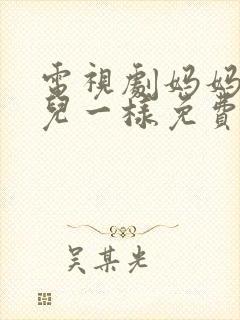 電視劇妈妈
兒一樣免費
吴某光